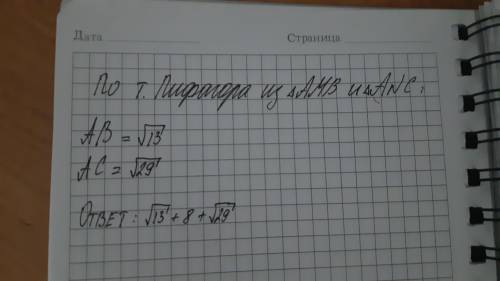 Дата
Страница
По т. Пифагора из △AMB и △ANC,
AB = √13
AC = √29
Ответ: √13 + 8 + √29